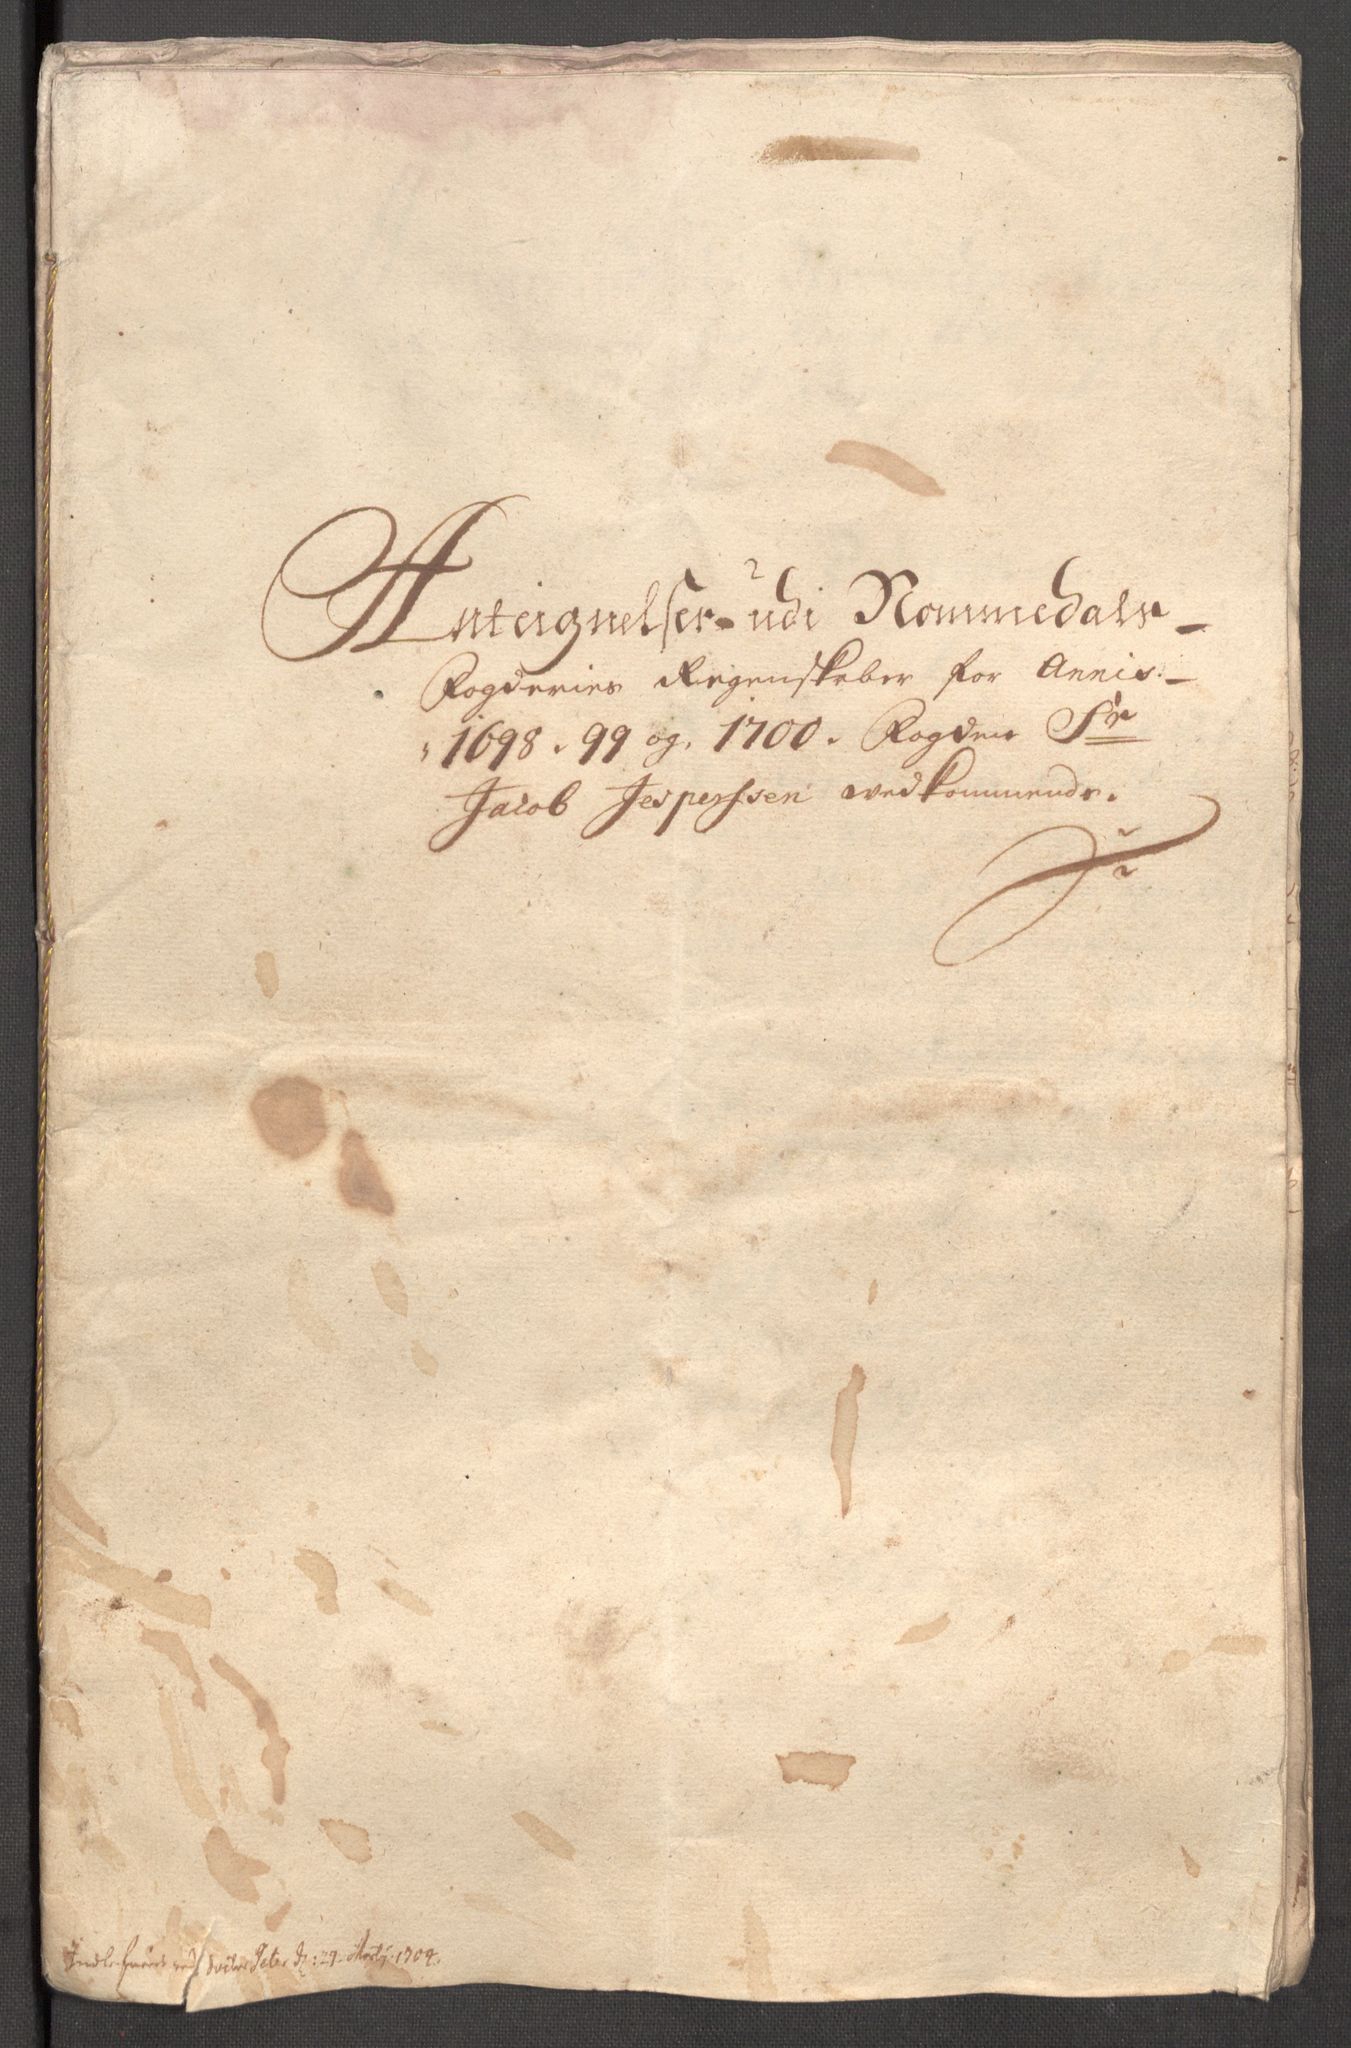 Anteignelser udi Nommedals
Fogderies Regenskaber for Annis
1698. 99 og. 1700. Fogden Sr
Jacob Jesperssen vedkommende.
Peter d: 29 Martj. 1704.